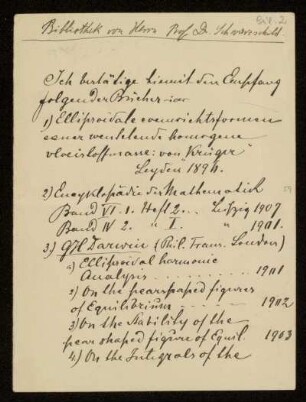 Bibliothek von Herrn Prof. Dr. Schwarzschild
Ich bestätige hiemit den Empfang
folgender Bücher:
1) Ellipsoidale evenwichtsformen
eener wentelende homogene
vloeistofmassa: von Krüger
Leyden 1896.
2) Encyklopädie der Mathematisch
Band VI. 1. Heft 2. .. Leipzig 1907
Band IV 2. " I. " 1901.
3) G. H. Darwin (Phil. Trans. London)
1) Ellipsoidal harmonic
Analysis . . . . . . . 1901
2) On the pearshaped figures
of Equilibrium . . . . . 1902
3) On the Stability of the
pear shaped figure of Equil. 1903
4) On the Integrals of the